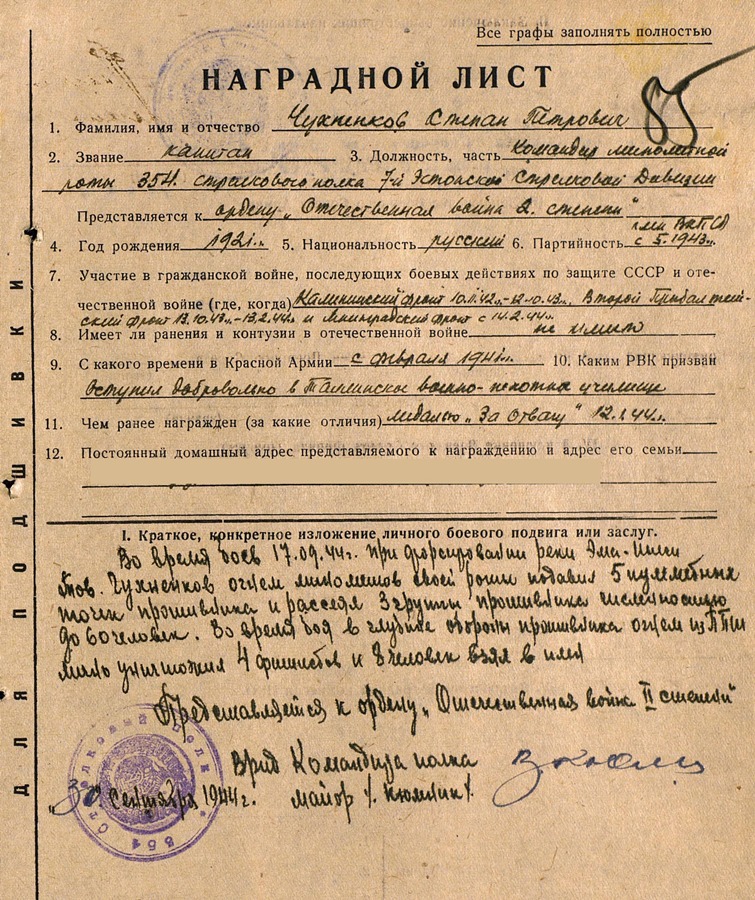 Все графы заполнять полностью
НАГРАДНОЙ ЛИСТ
85
1. Фамилия, имя и отчество Чухненков Степан Петрович
2. Звание капитан 3. Должность, часть Командир минометной
роты 354 стрелкового полка 7-й Эстонской Стрелковой Дивизии
Представляется к ордену „Отечественная война 2. степени"
4. Год рождения 1921 г. 5. Национальность русский 6. Партийность член ВКП(б) с 5.1943 г.
7. Участие в гражданской войне, последующих боевых действиях по защите СССР и оте-
чественной войне (где, когда) Калининский фронт 10.11.42 г.-12.10.43 г., Второй Прибалтий-
ский фронт 13.10.43 г.-13.2.44 г. и Ленинградский фронт с 14.2.44 г.
8. Имеет ли ранения и контузии в отечественной войне не имеет
9. С какого времени в Красной Армии с февраля 1941 г. 10. Каким РВК призван
Вступил добровольно в Таллинское военно-пехотное училище
11. Чем ранее награжден (за какие отличия) медалью „За отвагу" 12.1.44 г.
12. Постоянный домашний адрес представляемого к награждению и адрес его семьи
I. Краткое, конкретное изложение личного боевого подвига или заслуг.
Во время боев 17.09.44 г. при форсировании реки Эма-Йыги
тов. Чухненков огнем минометов своей роты подавил 5 пулеметных
точек противника и рассеял 3 группы противника численностью
до 60 человек. Во время боя в глубине обороны противника огнем из ППШ
лично уничтожил 4 фашистов и 8 человек взял в плен
Представляется к ордену „Отечественная война II степени"
Врид Командира полка
„30" Сентября 1944 г. майор
354 Стрелковый полк
ДЛЯ ПОДШИВКИ